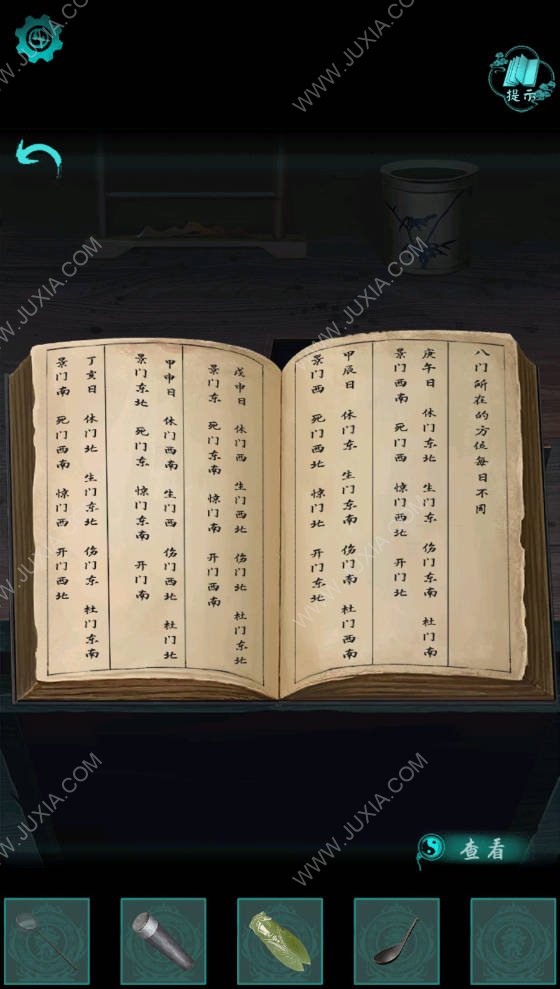 提示
八门所在的方位每日不同
庚午日 休门东北 生门东 伤门东南 杜门南
景门西南 死门西 惊门西北 开门北
甲辰日 休门东 生门东南 伤门南 杜门西南
景门西 死门西北 惊门北 开门东北
戊申日 休门西 生门西北 伤门北 杜门东北
景门东 死门东南 惊门南 开门西南
甲申日 休门西南 生门西 伤门西北 杜门北
景门东北 死门东 惊门东南 开门南
丁亥日 休门北 生门东北 伤门东 杜门东南
景门南 死门西南 惊门西 开门西北
查看
WWW.JUXIA.COM
WWW.JUXIA.COM
WWW.JUXIA.COM
WWW.JUXIA.COM